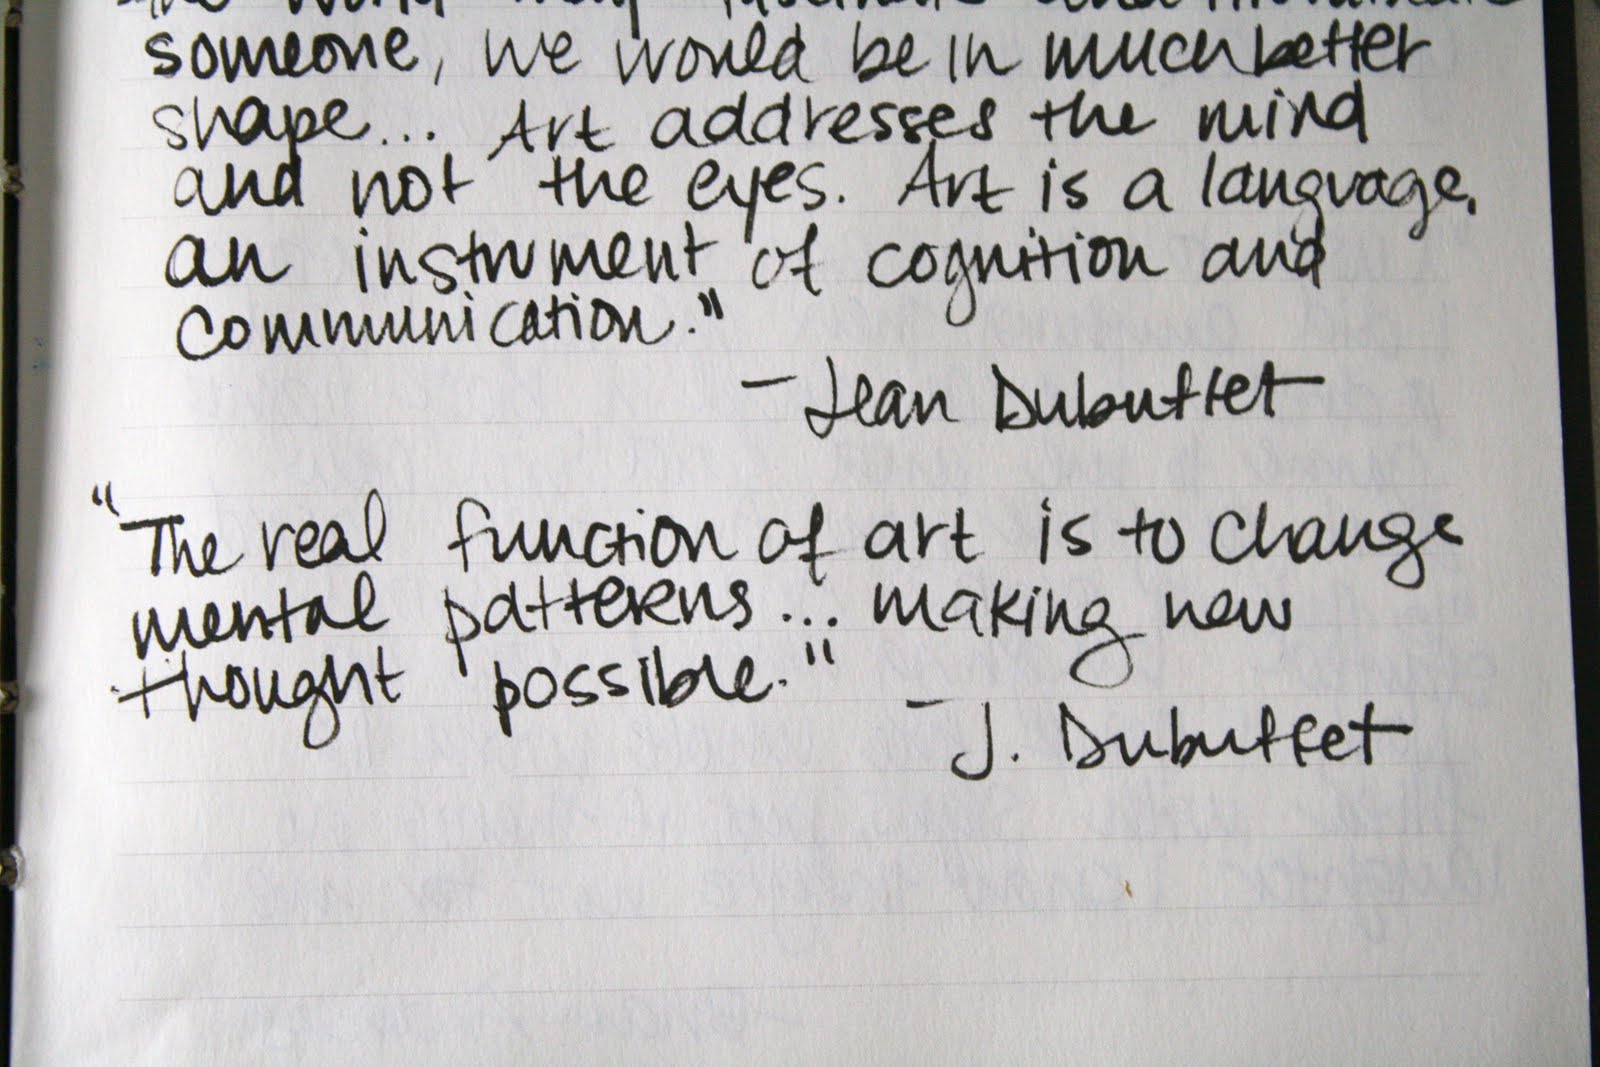 the world may fascinate and illuminate
someone, we would be in much better
shape... Art addresses the mind
and not the eyes. Art is a language,
an instrument of cognition and
communication."
- Jean Dubuffet
"The real function of art is to change
mental patterns... making new
thought possible."
- J. Dubuffet